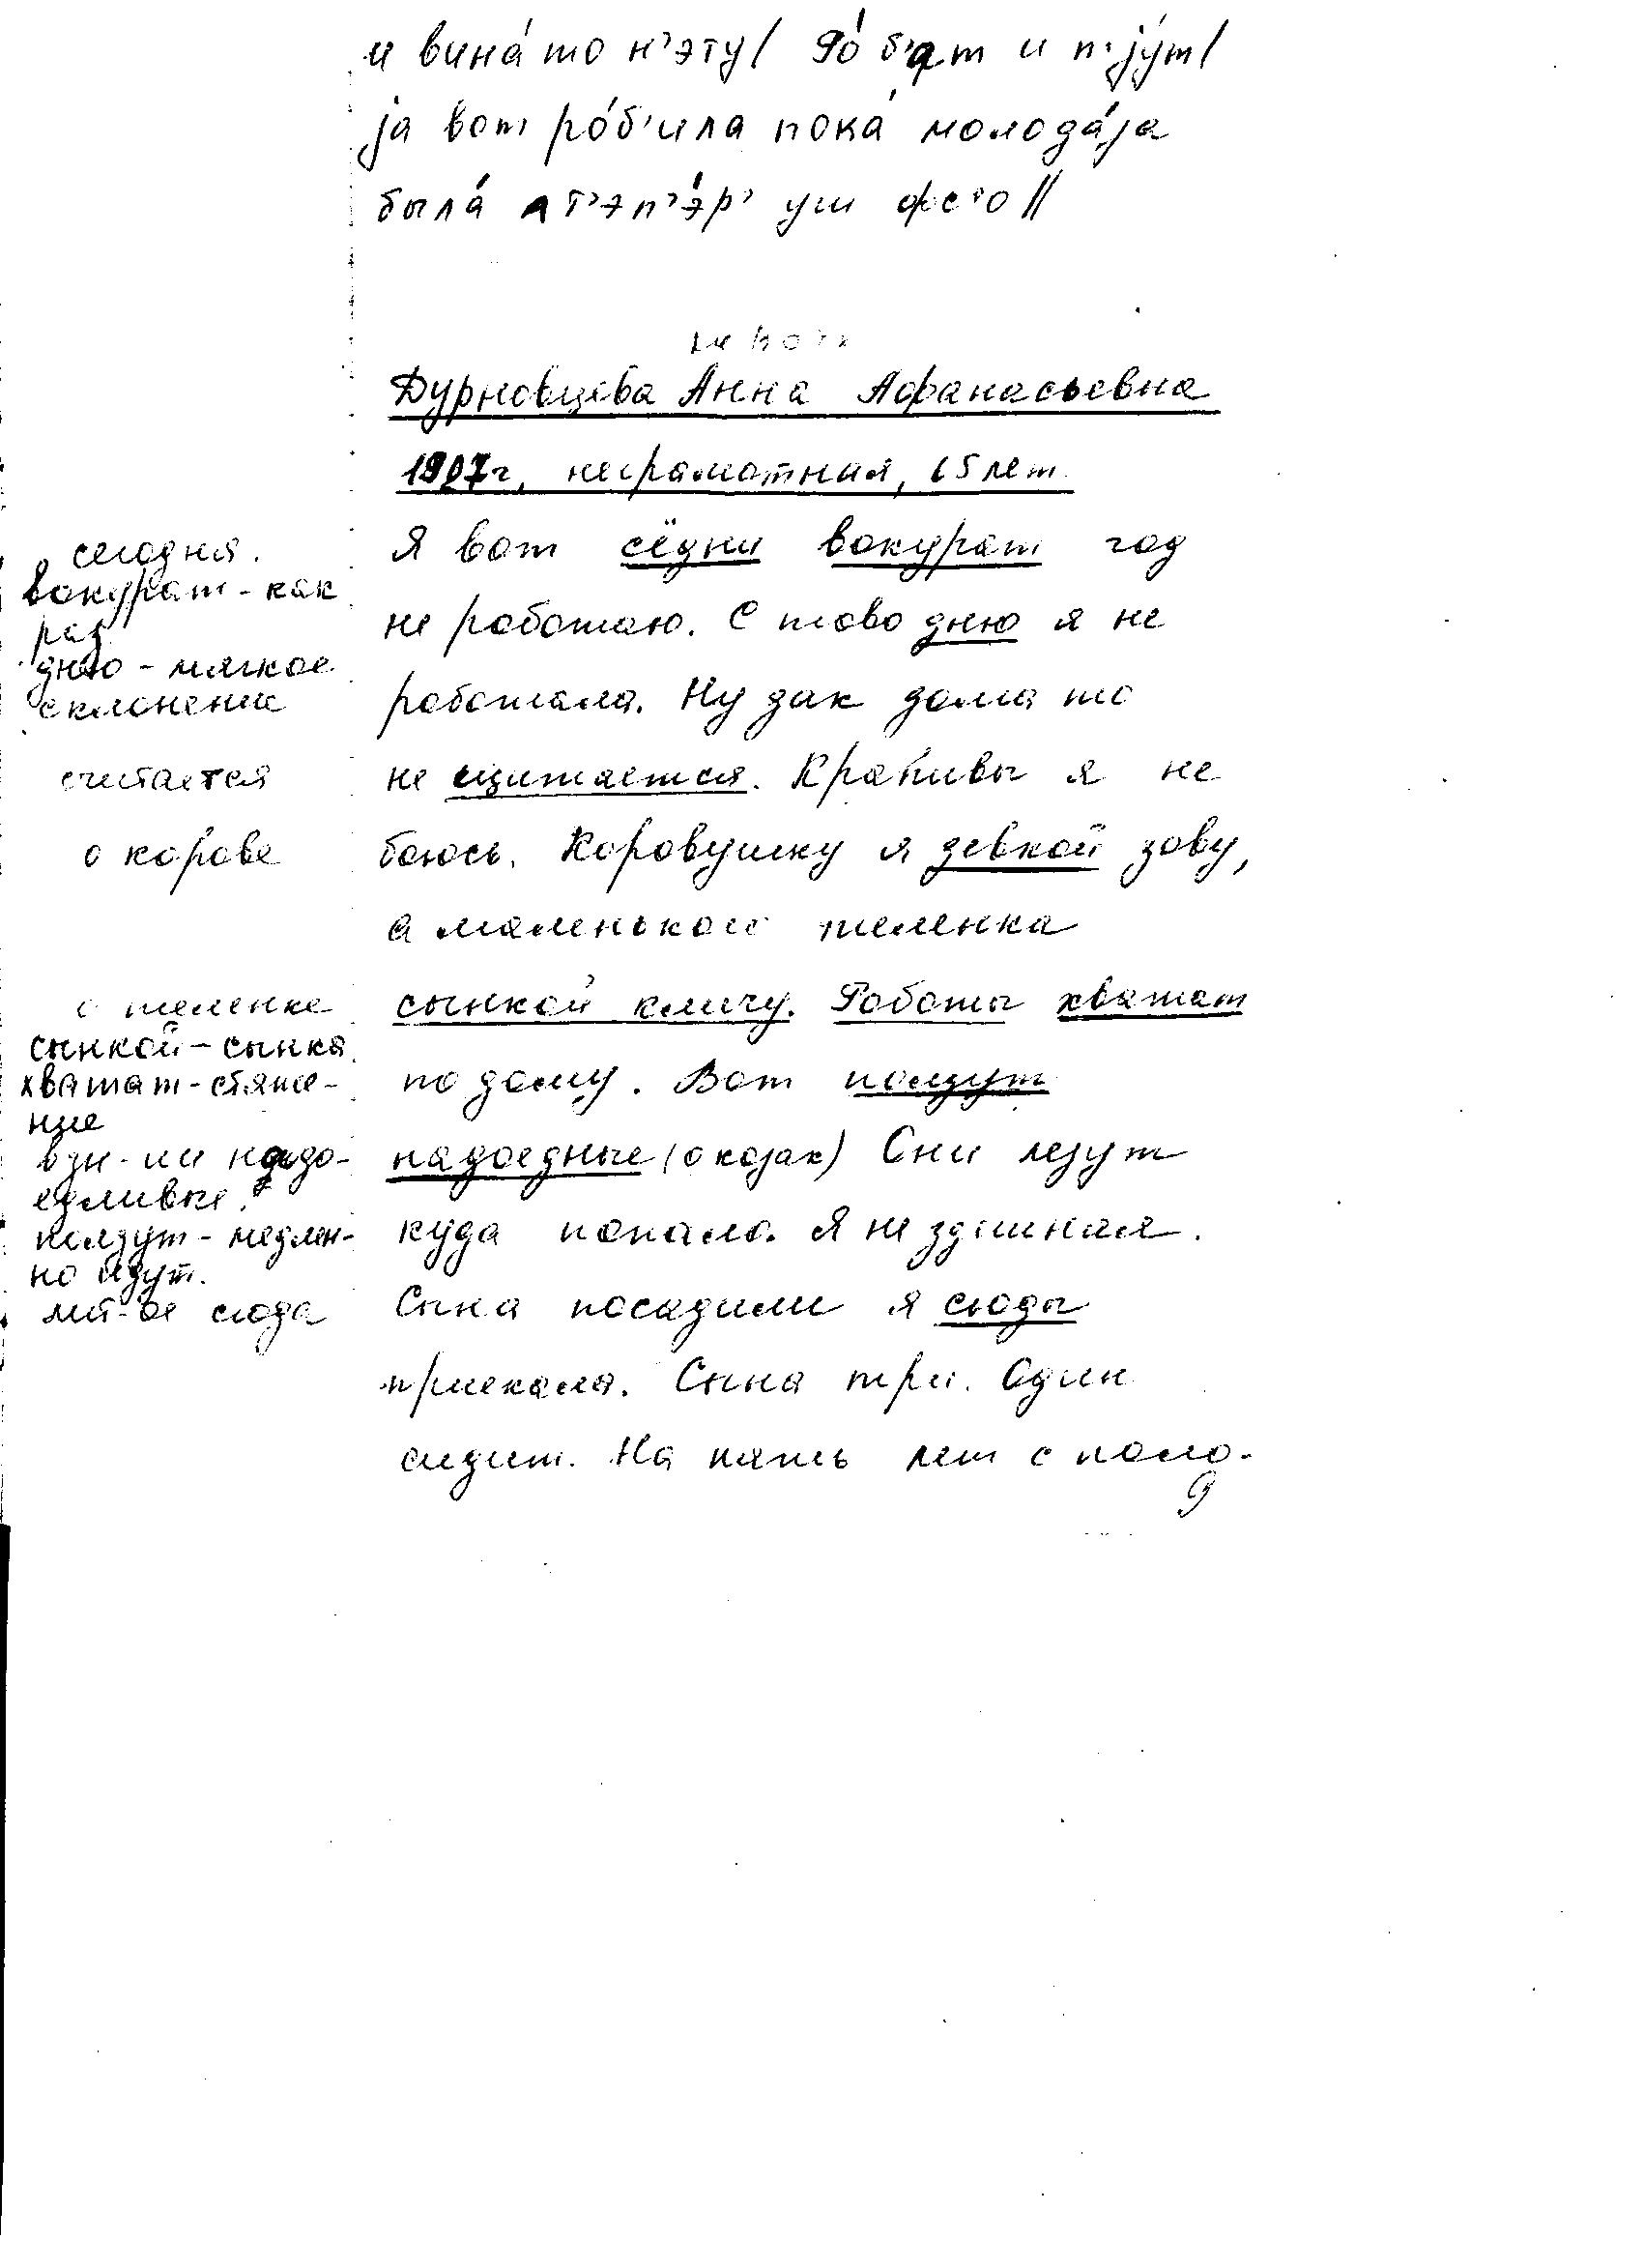 и вина́ то н'эту/ ро́б'ат и п'jу́т/
ја вот ро́б'ила пока́ молода́ја
была́ а т'эп'э́р' уш фс'о //
Дурновцева Анна Афанасьевна
1907г, неграмотная, 65 лет.
Я вот сёдни вокурат год
не роботаю. С тово дню я не
роботала. Ну дак дома то
не щитается. Крапивы я не
боюсь. Коровушку я девкой зову,
а маленького теленка
сынкой кличу. Роботы хватат
по дому. Вот ползут
надоедные (о козах) Они лезут
куда попало. Я не здешная.
Сына посадили я сюды
приехала. Сына три. Один
сидит. На пять лет с поло-
9
сегодня.
вокурат - как
раз
дню - мягкое
склонение
считается
о корове
о теленке
сынкой - сынка
хватат - стяже-
ние
надо-
едливые.
ползут - медлен-
но идут.
сюда